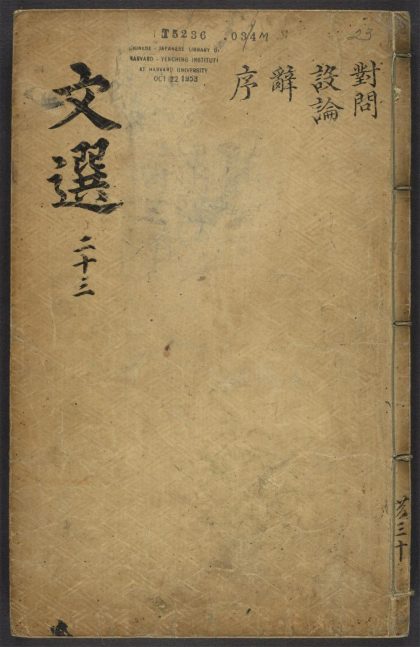 T5236 .034M
23
CHINESE - JAPANESE LIBRARY OF
HARVARD - YENCHING INSTITUTE
AT HARVARD UNIVERSITY
OCT 22 1953
對問
設論
辭
序
文選
二十三
共三十